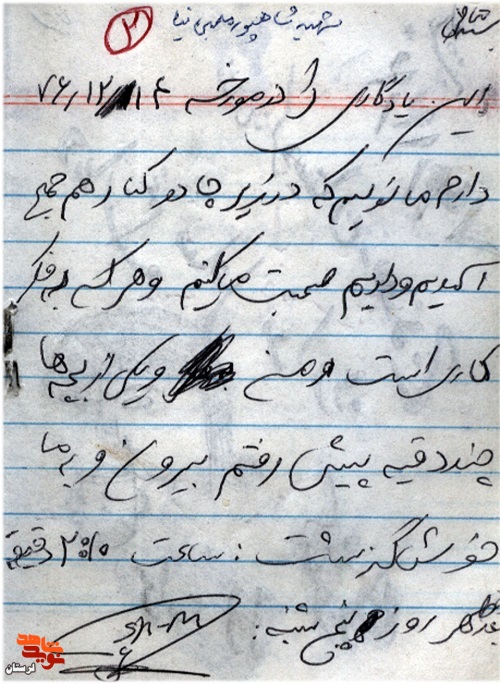 ۲ شهید شاهپور معین نیا
این یادگاری را در مورخه ۷۶/۱۲/۱۴
دارم مانویسم که در زیر چادر کنار هم جمع
آمدیم و داریم صحبت میکنیم و هرکس به فکر
کاری است و من و یکی از بچه ها
چند دقیه پیش رفتم بیرون و به ما
خوش گذشت : ساعت ۲:۱۰ دقیقه
روز پنج شنبه :
نوید شاهد
لرستان